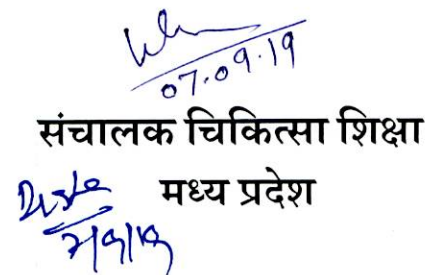 07.09.19
संचालक चिकित्सा शिक्षा
मध्य प्रदेश